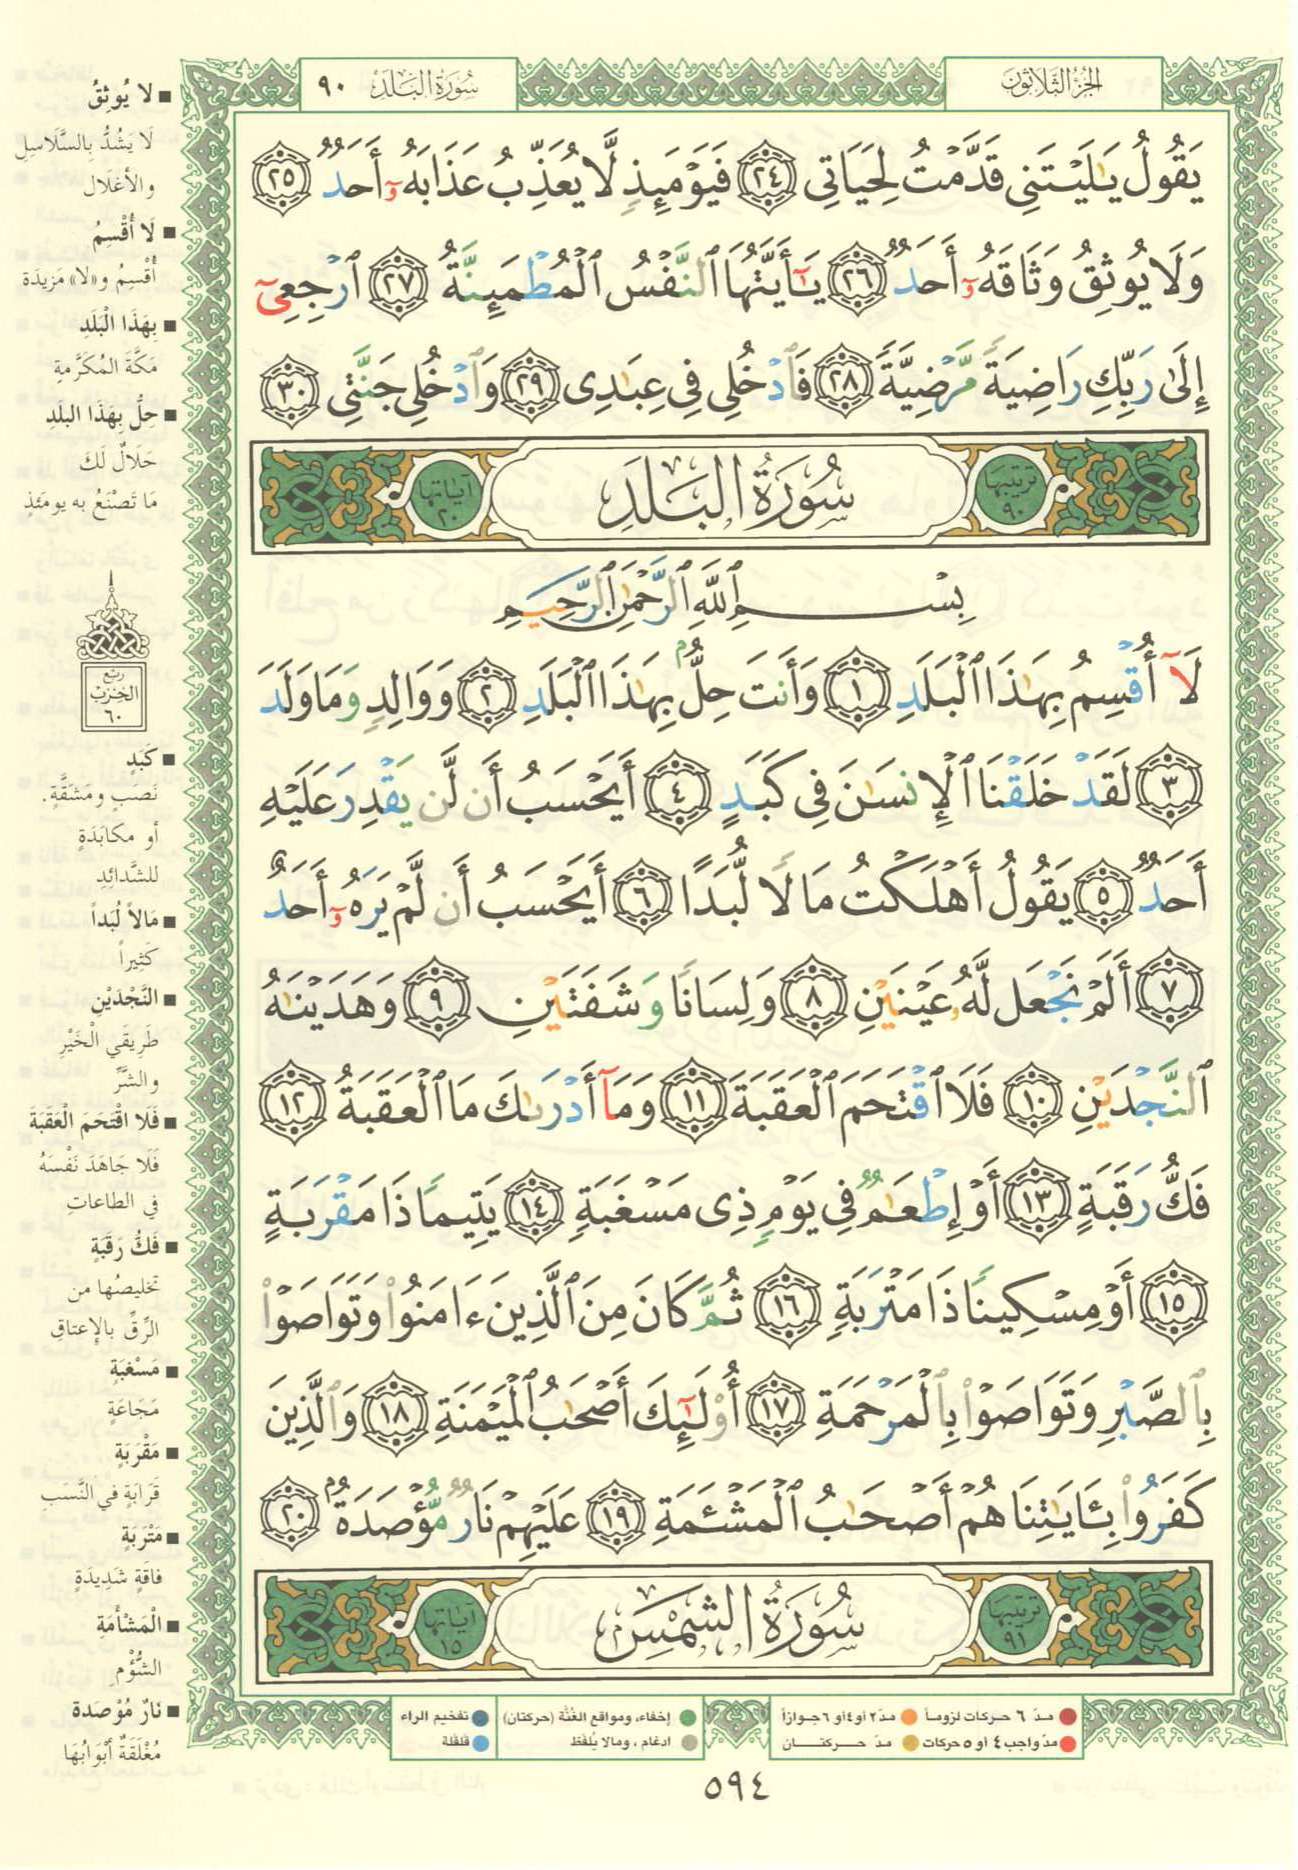 سُورَةُ البَلَدِ ٩٠
الجُزْءُ الثَّلَاثُونَ
يَقُولُ يَٰلَيۡتَنِي قَدَّمۡتُ لِحَيَاتِي ٢٤ فَيَوۡمَئِذٖ لَّا يُعَذِّبُ عَذَابَهُۥٓ أَحَدٞ ٢٥
وَلَا يُوثِقُ وَثَاقَهُۥٓ أَحَدٞ ٢٦ يَٰٓأَيَّتُهَا ٱلنَّفۡسُ ٱلۡمُطۡمَئِنَّةُ ٢٧ ٱرۡجِعِيٓ
إِلَىٰ رَبِّكِ رَاضِيَةٗ مَّرۡضِيَّةٗ ٢٨ فَٱدۡخُلِي فِي عِبَٰدِي ٢٩ وَٱدۡخُلِي جَنَّتِي ٣٠
ترتيبها ٩٠ سُورَةُ البَلَدِ آياتها ٢٠
بِسۡمِ ٱللَّهِ ٱلرَّحۡمَٰنِ ٱلرَّحِيمِ
لَآ أُقۡسِمُ بِهَٰذَا ٱلۡبَلَدِ ١ وَأَنتَ حِلُّۢ بِهَٰذَا ٱلۡبَلَدِ ٢ وَوَالِدٖ وَمَا وَلَدَ
٣ لَقَدۡ خَلَقۡنَا ٱلۡإِنسَٰنَ فِي كَبَدٍ ٤ أَيَحۡسَبُ أَن لَّن يَقۡدِرَ عَلَيۡهِ
أَحَدٞ ٥ يَقُولُ أَهۡلَكۡتُ مَالٗا لُّبَدًا ٦ أَيَحۡسَبُ أَن لَّمۡ يَرَهُۥٓ أَحَدٌ
٧ أَلَمۡ نَجۡعَل لَّهُۥ عَيۡنَيۡنِ ٨ وَلِسَانٗا وَشَفَتَيۡنِ ٩ وَهَدَيۡنَٰهُ
ٱلنَّجۡدَيۡنِ ١٠ فَلَا ٱقۡتَحَمَ ٱلۡعَقَبَةَ ١١ وَمَآ أَدۡرَىٰكَ مَا ٱلۡعَقَبَةُ ١٢
فَكُّ رَقَبَةٍ ١٣ أَوۡ إِطۡعَٰمٞ فِي يَوۡمٖ ذِي مَسۡغَبَةٖ ١٤ يَتِيمٗا ذَا مَقۡرَبَةٍ
١٥ أَوۡ مِسۡكِينٗا ذَا مَتۡرَبَةٖ ١٦ ثُمَّ كَانَ مِنَ ٱلَّذِينَ ءَامَنُواْ وَتَوَاصَوۡاْ
بِٱلصَّبۡرِ وَتَوَاصَوۡاْ بِٱلۡمَرۡحَمَةِ ١٧ أُوْلَٰٓئِكَ أَصۡحَٰبُ ٱلۡمَيۡمَنَةِ ١٨ وَٱلَّذِينَ
كَفَرُواْ بِـَٔايَٰتِنَا هُمۡ أَصۡحَٰبُ ٱلۡمَشۡـَٔمَةِ ١٩ عَلَيۡهِمۡ نَارٞ مُّؤۡصَدَةُۢ ٢٠
ترتيبها ٩١ سُورَةُ الشَّمْسِ آياتها ١٥
■ لا يُوثِقُ
لَا يَشُدُّ بِالسَّلَاسِلِ
والأغلَال
■ لَا أُقْسِمُ
أُقْسِمُ و«لا» مَزيدَة
■ بِهَذَا الْبَلَدِ
مَكَّةَ المُكَرَّمةِ
■ حِلٌّ بِهَذَا البلَد
حَلَالٌ لَكَ
مَا تَصْنَعُ به يومَئذٍ
رُبْع
الحِزْبْ
٦٠
■ كَبَدٍ
نَصَبٍ ومَشَقَّةٍ.
أو مكَابَدَةٍ
للشَّدائِدِ
■ مَالاً لُبَداً
كَثِيراً
■ النَّجْدَيْنِ
طَرِيقَي الْخَيْرِ
والشَّرِّ
■ فَلَا اقْتَحَمَ الْعَقَبَةَ
فَلَا جَاهَدَ نَفْسَهُ
فِي الطاعَاتِ
■ فَكُّ رَقَبَةٍ
تخليصُها من
الرِّقِّ بالإعتاقِ
■ مَسْغَبَةٍ
مَجَاعَةٍ
■ مَقْرَبَةٍ
قَرَابَةٍ في النَّسَبِ
■ مَتْرَبَةٍ
فاقَةٍ شَدِيدَةٍ
■ الْمَشْأَمَة
الشُّؤْمِ
■ نَارٌ مُؤْصَدَة
مُغْلَقَةٌ أَبْوَابُهَا
مدّ ٦ حركات لزوماً مدّ ٢ أو ٤ أو ٦ جوازاً
مدّ واجب ٤ أو ٥ حركات مدّ حركتان
إخفاء، ومواقع الغُنَّة (حركتان) تفخيم الراء
ادغام، ومالا يُلفَظ قلقلة
٥٩٤